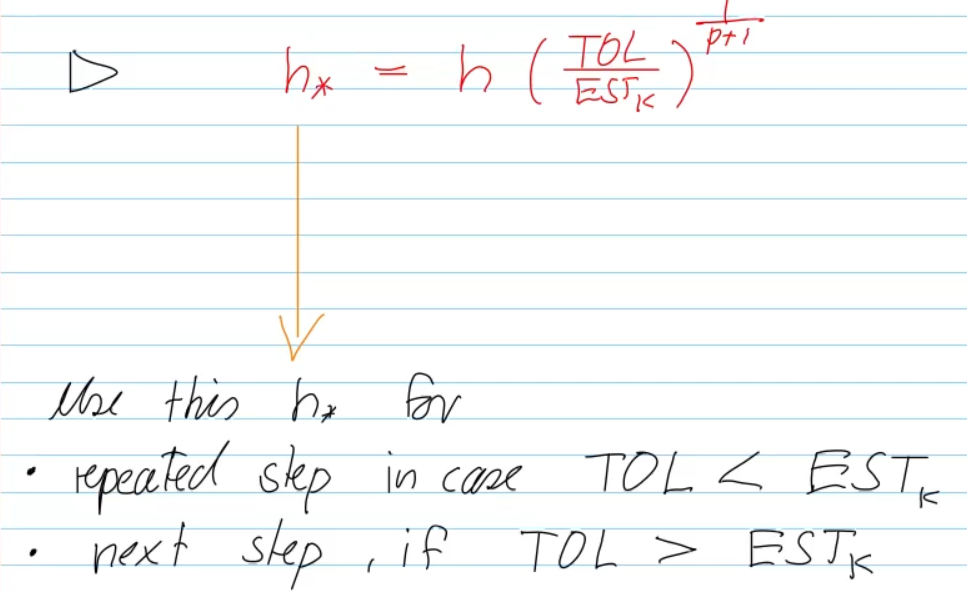 ▷ h* = h (TOL/EST_K)^(1/(p+1))
Use this h* for
• repeated step in case TOL < EST_K
• next step, if TOL > EST_K